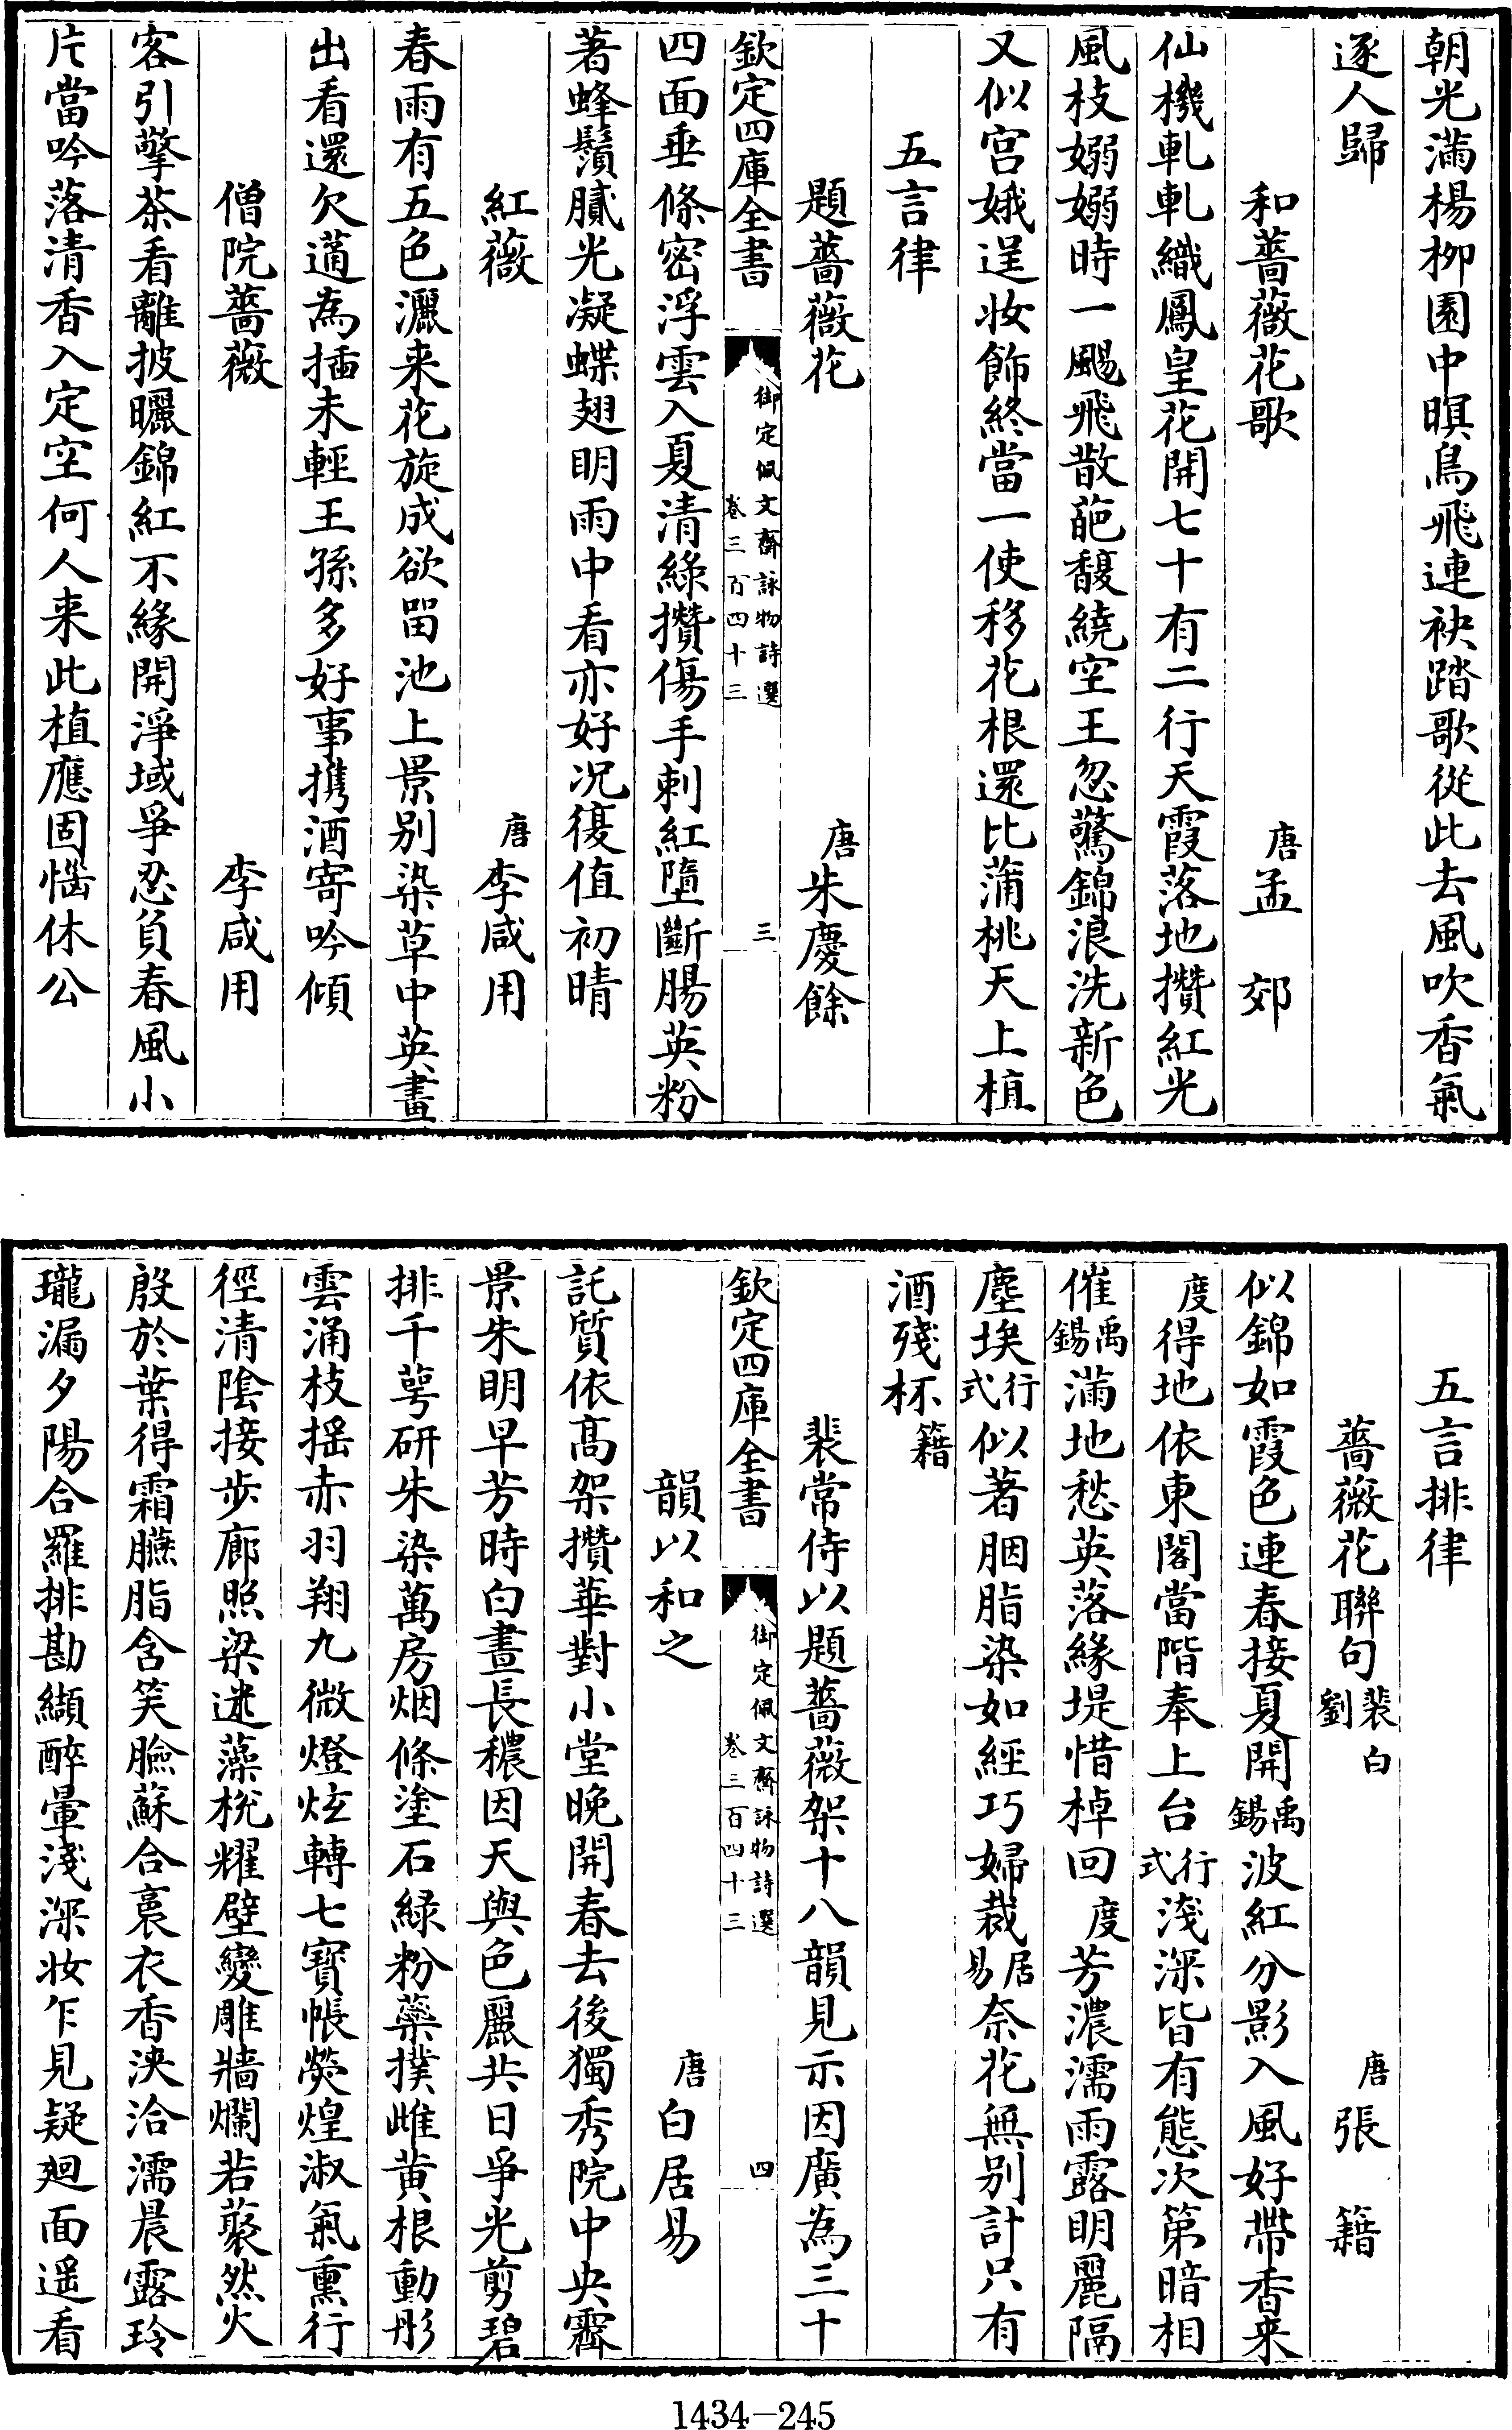 朝光滿楊柳園中暝鳥飛連袂踏歌從此去風吹香氣
逐人歸
和薔薇花歌 唐孟郊
仙機軋軋織鳳皇花開七十有二行天霞落地攢紅光
風枝嫋嫋時一颺飛散葩馥繞空王忽驚錦浪洗新色
又似宫娥逞妝飾終當一使移花根還比蒲桃天上植
五言律
題薔薇花 唐朱慶餘
欽定四庫全書
御定佩文齋詠物詩選
卷三百四十三
三
四面垂條密浮雲入夏清綠攢傷手刺紅墮斷腸英粉
著蜂鬚膩光凝蝶翅明雨中看亦好况復值初晴
紅薇 唐李咸用
春雨有五色灑来花旋成欲留池上景别染草中英畫
出看還欠適為插未輕王孫多好事携酒寄吟傾
僧院薔薇 李咸用
客引擎茶看離披曬錦紅不緣開淨域爭忍負春風小
片當吟落清香入定空何人来此植應固惱休公
五言排律
薔薇花聯句裴白劉 唐張籍
似錦如霞色連春接夏開禹錫波紅分影入風好帶香来
度得地依東閣當階奉上台行式淺深皆有態次第暗相
催禹錫滿地愁英落緣堤惜棹回度芳濃濡雨露明麗隔
塵埃行式似著胭脂染如經巧婦裁居易奈花無别計只有
酒殘杯籍
裴常侍以題薔薇架十八韻見示因廣為三十
欽定四庫全書
御定佩文齋詠物詩選
卷三百四十三
四
韻以和之 唐白居易
託質依高架攢華對小堂晚開春去後獨秀院中央霽
景朱明早芳時白晝長穠因天與色麗共日爭光剪碧
排千萼研朱染萬房烟條塗石緑粉蘂撲雌黄根動彤
雲涌枝摇赤羽翔九微燈炫轉七寳帳熒煌淑氣熏行
徑清陰接步廊照梁迷藻梲耀壁變雕牆爛若藂然火
殷於葉得霜臙脂含笑臉蘇合裛衣香浹洽濡晨露玲
瓏漏夕陽合羅排勘纈醉暈淺深妝乍見疑廻面遥看
1434-245